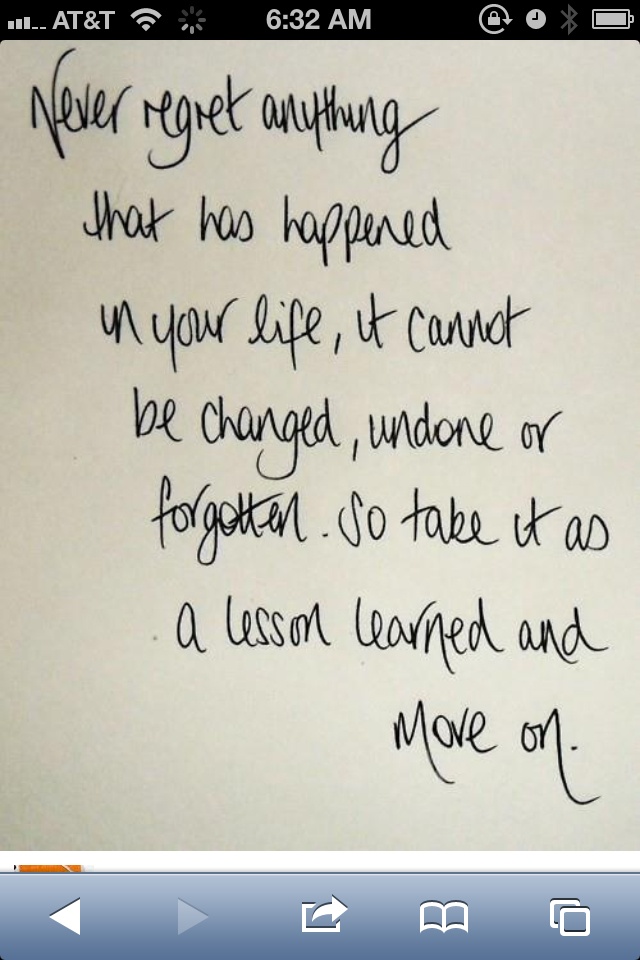 AT&T 6:32 AM
Never regret anything
that has happened
in your life, it cannot
be changed, undone or
forgotten. So take it as
a lesson learned and
move on.